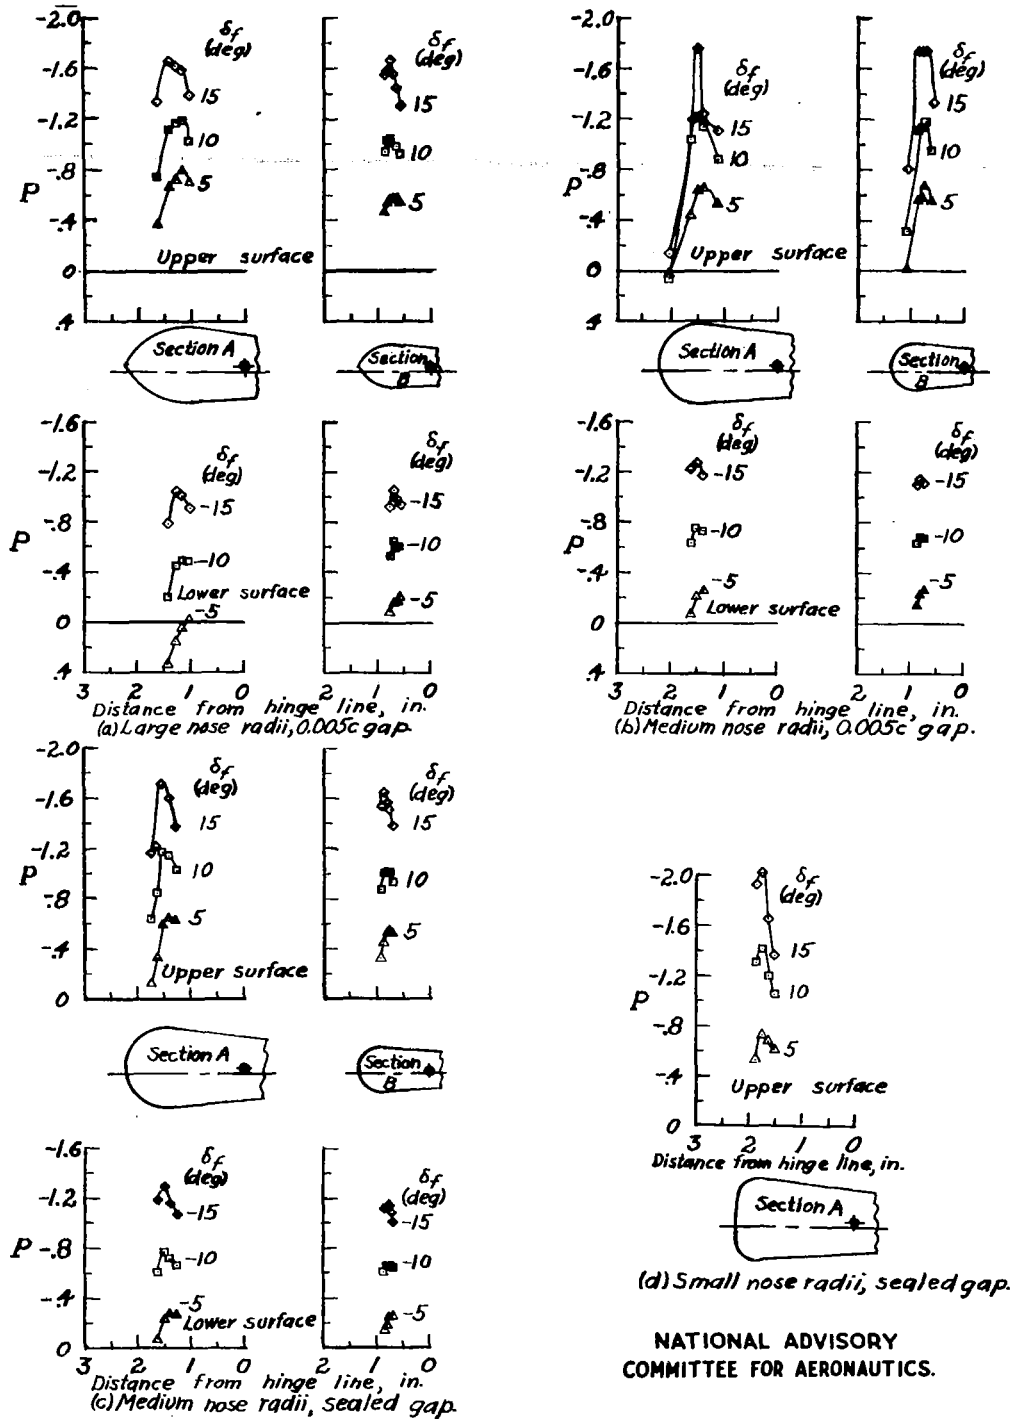 -2.0
-1.6
-1.2
-.8
-.4
0
.4
P
δf
(deg)
15
10
5
Upper surface
δf
(deg)
15
10
5
Section A
Section
B
-1.6
-1.2
-.8
-.4
0
.4
P
δf
(deg)
-15
-10
Lower surface
-5
δf
(deg)
-15
-10
-5
3 2 1 0
2 1 0
Distance from hinge line, in.
(a) Large nose radii, 0.005c gap.
-2.0
-1.6
-1.2
-.8
-.4
0
.4
P
δf
(deg)
15
10
5
Upper surface
δf
(deg)
15
10
5
Section A
Section
B
-1.6
-1.2
-.8
-.4
0
.4
P
δf
(deg)
-15
-10
-5
Lower surface
δf
(deg)
-15
-10
-5
3 2 1 0
2 1 0
Distance from hinge line, in.
(b) Medium nose radii, 0.005c gap.
-2.0
-1.6
-1.2
-.8
-.4
0
P
δf
(deg)
15
10
5
Upper surface
δf
(deg)
15
10
5
Section A
Section
B
-1.6
-1.2
-.8
-.4
0
P
δf
(deg)
-15
-10
-5
Lower surface
δf
(deg)
-15
-10
-5
3 2 1 0
2 1 0
Distance from hinge line, in.
(c) Medium nose radii, sealed gap.
-2.0
-1.6
-1.2
-.8
-.4
0
P
δf
(deg)
15
10
5
Upper surface
3 2 1 0
Distance from hinge line, in.
Section A
(d) Small nose radii, sealed gap.
NATIONAL ADVISORY
COMMITTEE FOR AERONAUTICS.